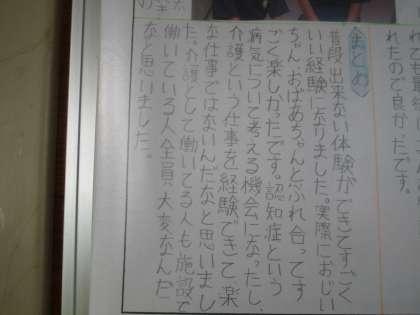 れも重
れたので良かったです。
まとめ
普段出来ない体験ができてすごく
いい経験になりました。実際におじい
ちゃん、おばあちゃんとふれ合ってす
ごく楽しかったです。認知症という
病気について考える機会になったし、
介護という仕事を経験できて楽
な仕事ではないんだなと思いまし
た。介護として働いてる人も施設で
働いている人全員、大変なんだ
なと思いました。